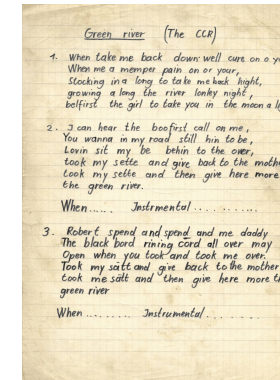 Green river (The CCR)
1. When take me back down well cure on o yo
When me a memper pain on or your,
Stocking in a long to take me back hight,
growing a long the river lonky night,
belfirst the girl to take you in the moon a li
2. I can hear the boofirst call on me,
You wanna in my road still hin to be,
Lovin sit my be behin to the over,
took my sette and give back to the mothe
took my sette and then give here more
the green river.
When...... Instrmental ..........
3. Robert spend and spend and me daddy
The black bord rining cord all over may
Open when you took and took me over.
Took my sätt and give back to the mother
took me sätt and then give here more th
green river
When ......... Instrumental .......